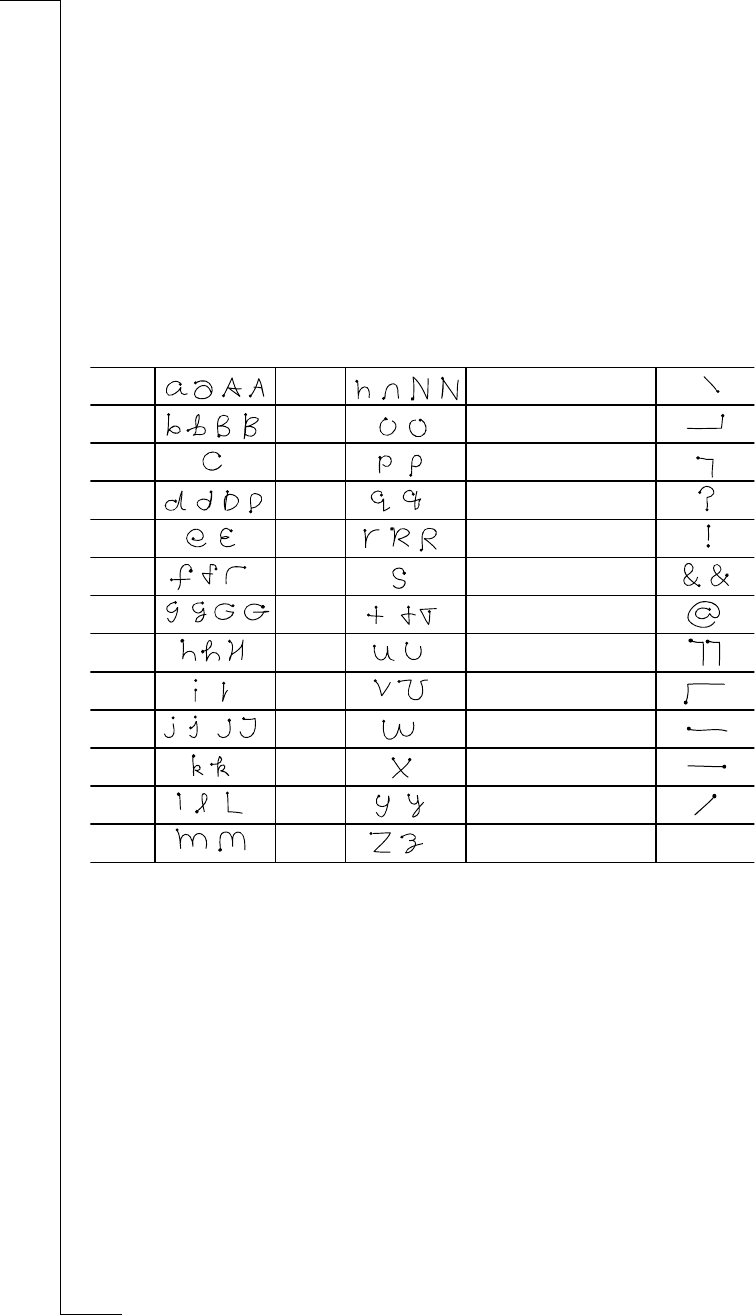 a a A A h n N N \
b b B B o o
c p p
d d D D q q ?
e E r R R !
f f s & &
g g G G t t @
h h H u u
i i v v
j j J J w
k k x —
l l L y y /
m m z z